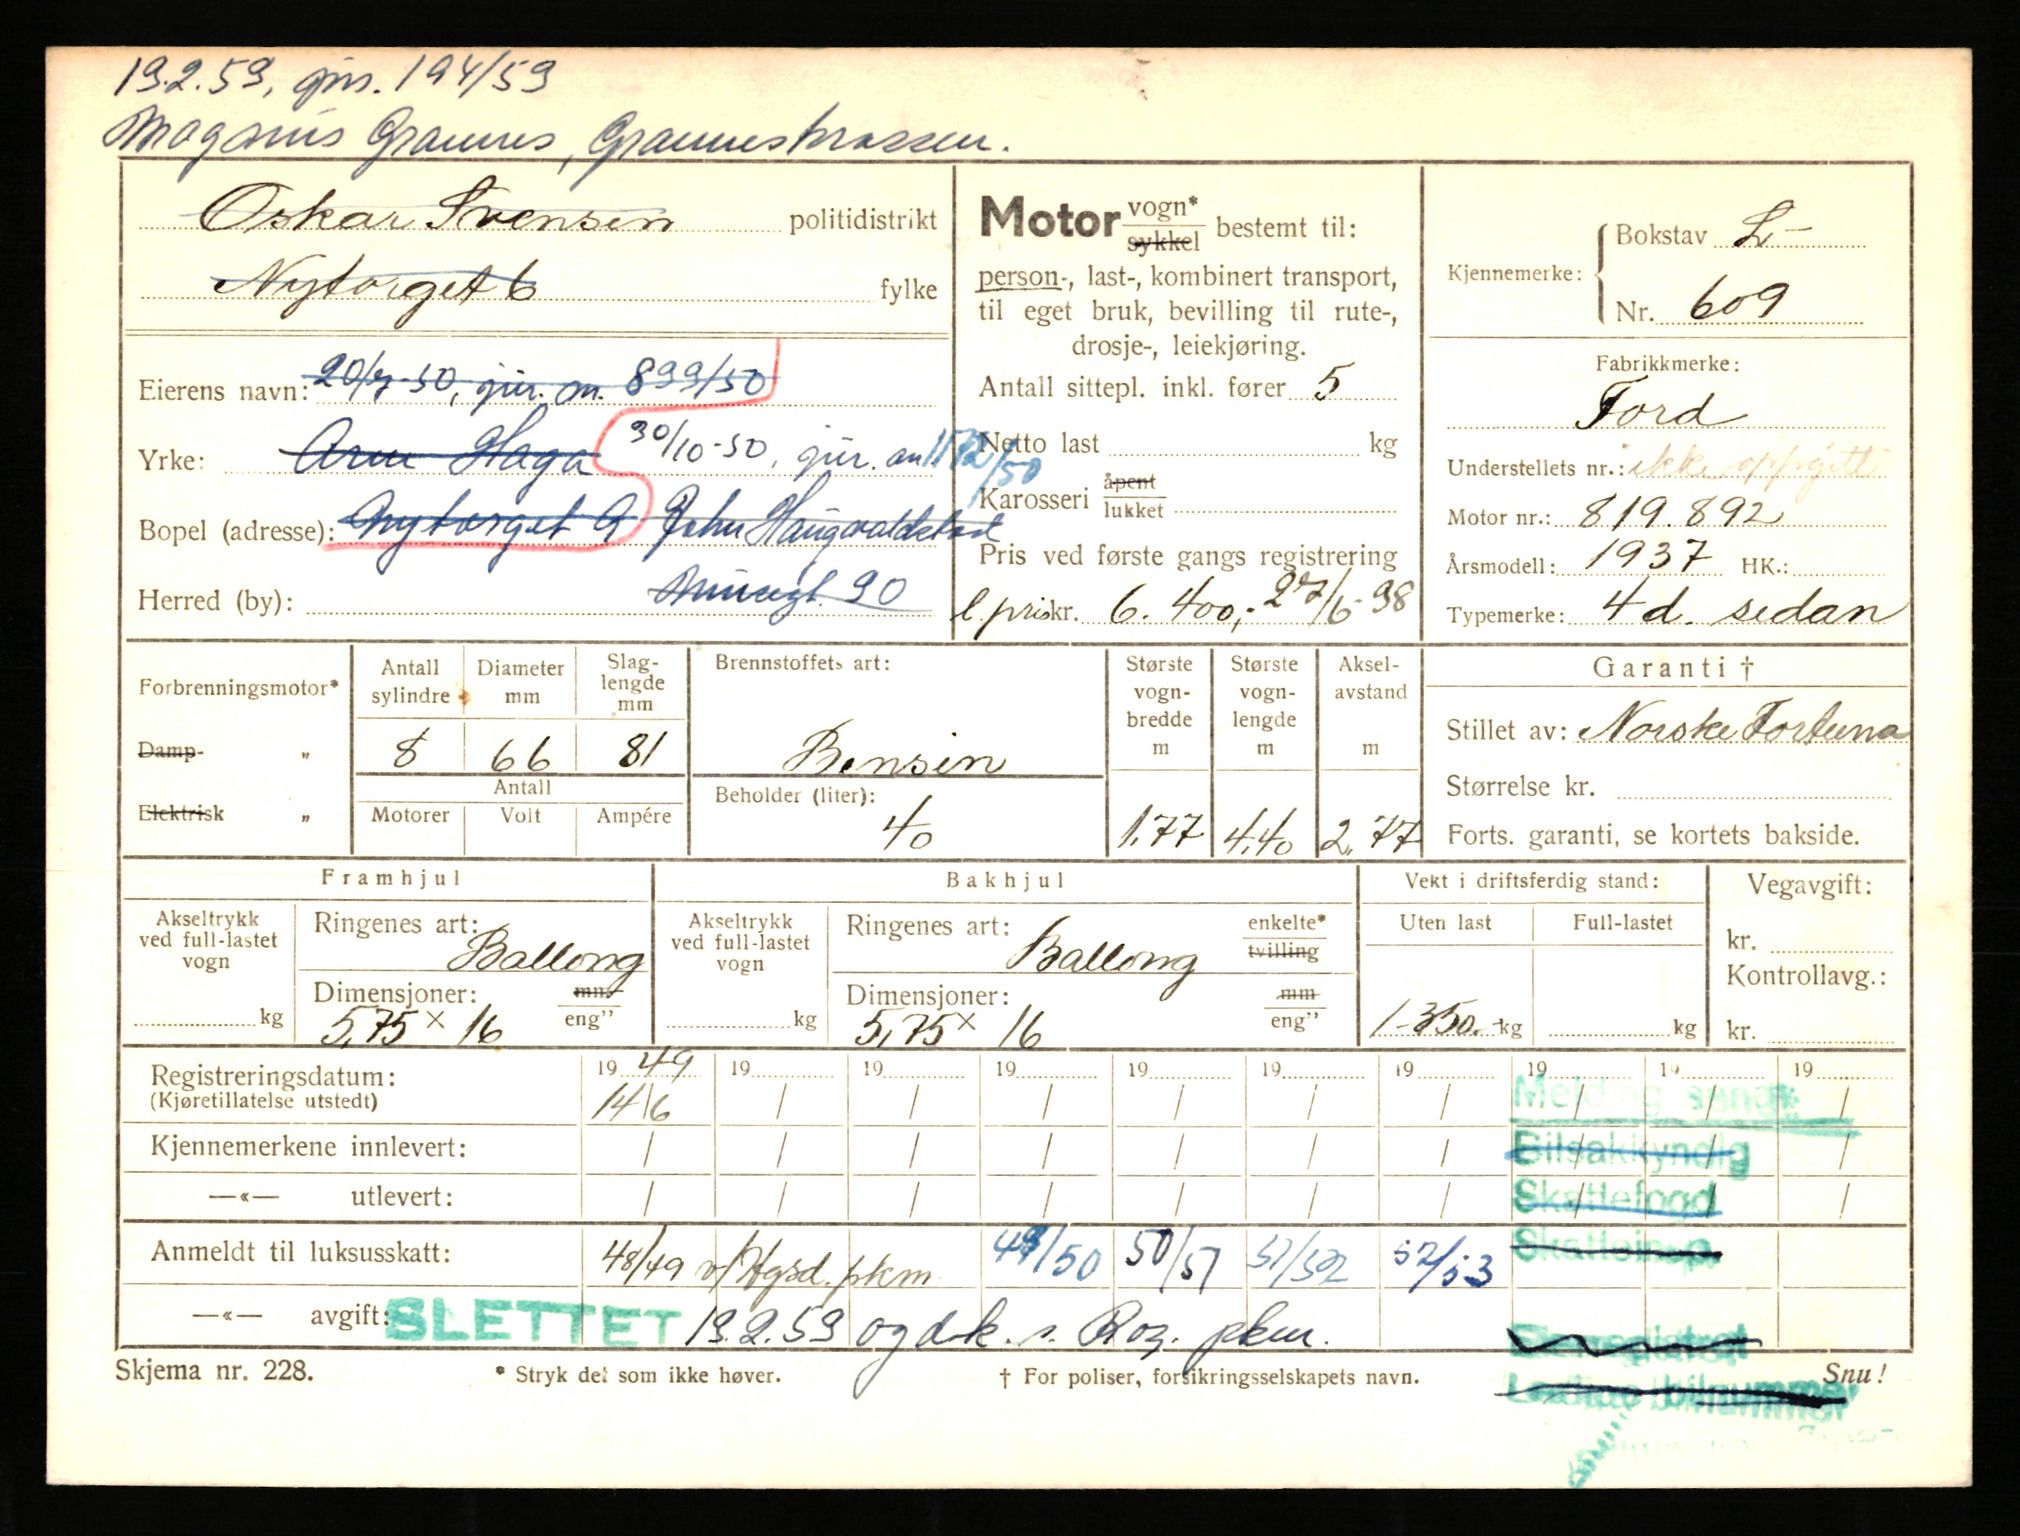 19.2.53, jnr. 194/53
Magnus Grannes, Grannestrassen.
Oskar Svensen politidistrikt
Nytorget 6 fylke
Eierens navn: 20/7-50, jnr. an. 899/50
Yrke: Arne Haga 30/10-50, jnr. an 1572/50
Bopel (adresse): Nytorget 9 John Haugvaldstad
Herred (by): 90
Motor vogn* sykkel bestemt til:
person-, last-, kombinert transport,
til eget bruk, bevilling til rute-,
drosje-, leiekjøring.
Antall sittepl. inkl. fører 5
Netto last kg
Karosseri åpent lukket
Pris ved første gangs registrering
l. pris kr. 6.400,- 27/6-38
Kjennemerke: Bokstav L-
Nr. 609
Fabrikkmerke:
Ford
Understellets nr.: ikke oppgitt
Motor nr.: 819.892
Årsmodell: 1937 HK.:
Typemerke: 4 d. sedan
Forbrenningsmotor*
Damp- „
Elektrisk „
Antall sylindre Diameter mm Slag-lengde mm
8 66 81
Antall
Motorer Volt Ampére
Brennstoffets art:
Bensin
Beholder (liter):
40
Største vogn-bredde m Største vogn-lengde m Aksel-avstand m
1,77 4,40 2,77
Garanti †
Stillet av: Norske Fortuna
Størrelse kr.
Forts. garanti, se kortets bakside.
Framhjul
Akseltrykk ved full-lastet vogn
kg
Ringenes art:
Ballong
Dimensjoner: mm eng"
5,75 x 16
Bakhjul
Akseltrykk ved full-lastet vogn
kg
Ringenes art: enkelte* tvilling
Ballong
Dimensjoner: mm eng"
5,75 x 16
Vekt i driftsferdig stand:
Uten last Full-lastet
1350.- kg kg
Vegavgift:
kr.
Kontrollavg.:
kr.
Registreringsdatum: 19 49 19 19 19 19 19 19 19 19 19
(Kjøretillatelse utstedt) 14/6 / / / / / / / / /
Melding sendt:
Kjennemerkene innlevert: / / / / / / / / / /
Bilsakkyndig
—«— utlevert: / / / / / / / / / /
Skattefogd
Anmeldt til luksusskatt: 48/49 v/Hgsd. pkm 49/50 50/51 51/52 52/53
Skatteinsp.
—«— avgift: SLETTET 19.2.53 og d.k. s. Rog. pkm.
Skjema nr. 228. * Stryk det som ikke høver. † For poliser, forsikringsselskapets navn. Snu!